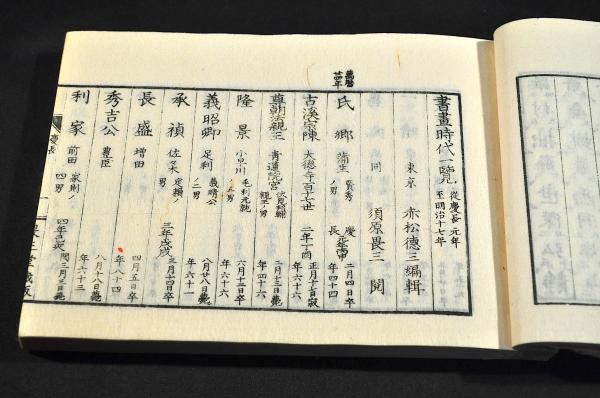 書畫時代一覽 從慶長元年
至明治十七年
東京 赤松德三編輯
同 須原畏三閱
萬曆
廿四年
氏郷 蒲生 賢秀
ノ男 慶長 二月四日卒
年四十
古溪宗陳 大德寺百十七世 二年丁酉 正月十七日寂
年六十六
尊朝法親王 青蓮院宮 伏見
親王ノ男 二月十三日薨
年四十六
隆景 小早川 毛利元就
ノ三男 六月十三日卒
年六十六
義昭卿 足利 義晴公
ノ二男 八月廿八日薨
年六十一
承禎 佐々木 定賴ノ
男 三年戊戌 三月十四日卒
長盛 増田 四月五日卒
年八十四
秀吉公 豊臣 八月十八日薨
年六十三
利家 前田 利ノ
四男 四年己亥 閏三月三日薨
慶長
一